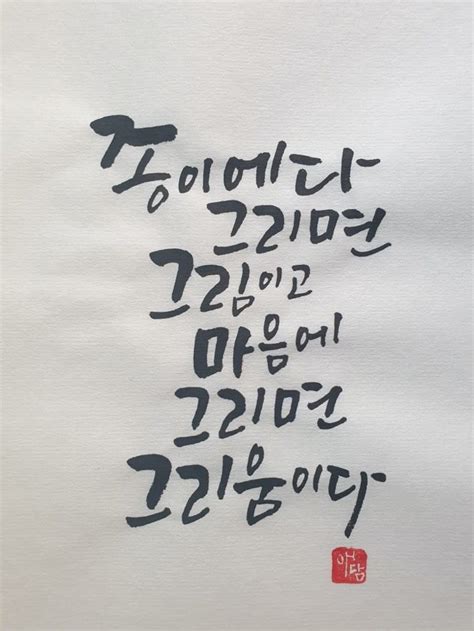 종이에다
그리면
그림이고
마음에
그리면
그리움이다
애담